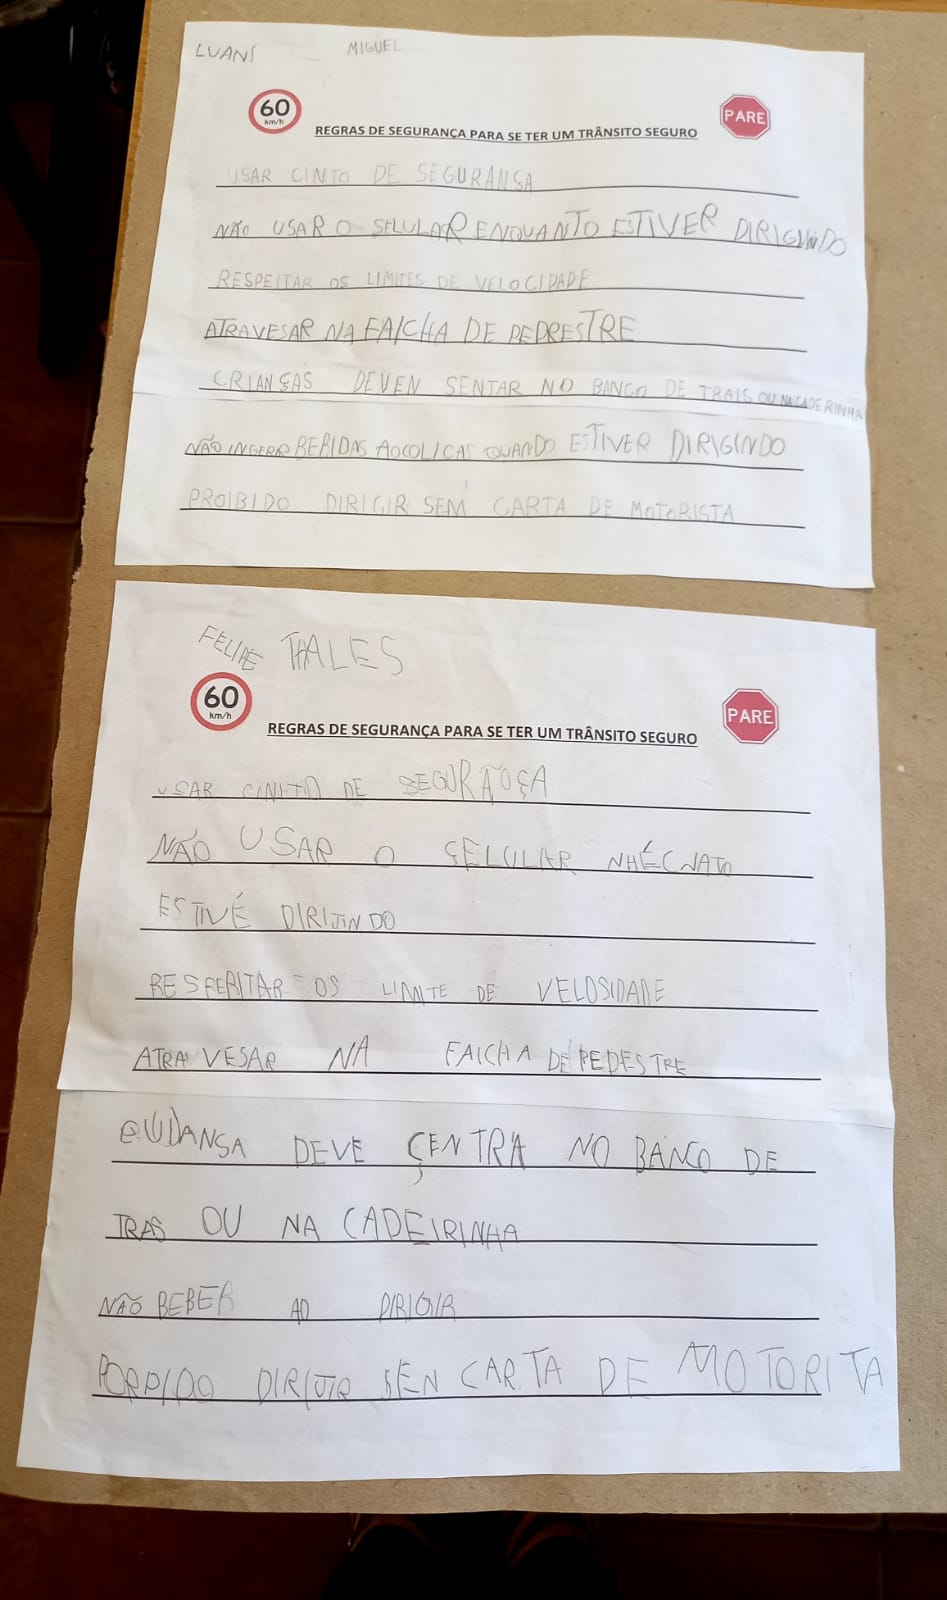 LUANS MIGUEL
60 km/h PARE
REGRAS DE SEGURANÇA PARA SE TER UM TRÂNSITO SEGURO
USAR CINTO DE SEGURANSA
NÃO USAR O SELULAR ENQUANTO ESTIVER DIRIGINDO
RESPEITAR OS LIMITES DE VELOCIDADE
ATRAVESAR NA FAICHA DE PEDRESTRE
CRIANSAS DEVEN SENTAR NO BANCO DE TRAIS OU NA CADERINHA
NÃO INGERR BEBIDAS AOCOLICAS QUANDO ESTIVER DIRIGINDO
PROIBIDO DIRIGIR SEM CARTA DE MOTORISTA
FELIPE THALES
60 km/h PARE
REGRAS DE SEGURANÇA PARA SE TER UM TRÂNSITO SEGURO
USAR DE
NÃO USAR O SELULAR
ESTIVÉ DIRIJINDO
OS LIMITE DE VELOSIDADE
ATRAVESAR NA FAICHA DE PEDESTRE
DEVE ÇENTRA NO BANCO DE
TRAS OU NA CADEIRINHA
NÃO BEBER AO DIRIGIR
DIRIJIR SEN CARTA DE MOTORITA